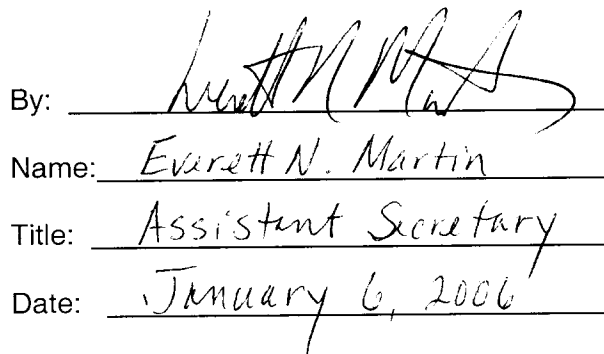 By: Everett N Martin
Name: Everett N. Martin
Title: Assistant Secretary
Date: January 6, 2006